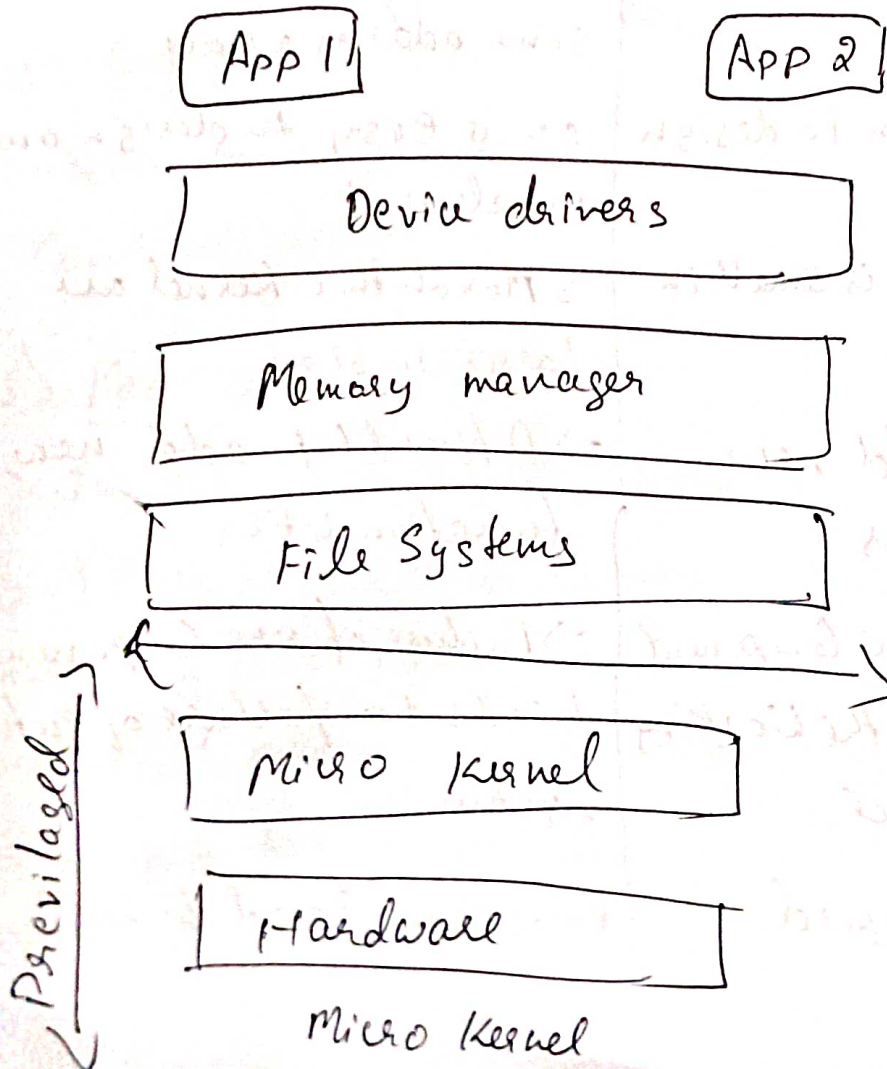 App 1
App 2
Device drivers
Memory manager
File Systems
Previlaged
Micro Kernel
Hardware
Micro Kernel